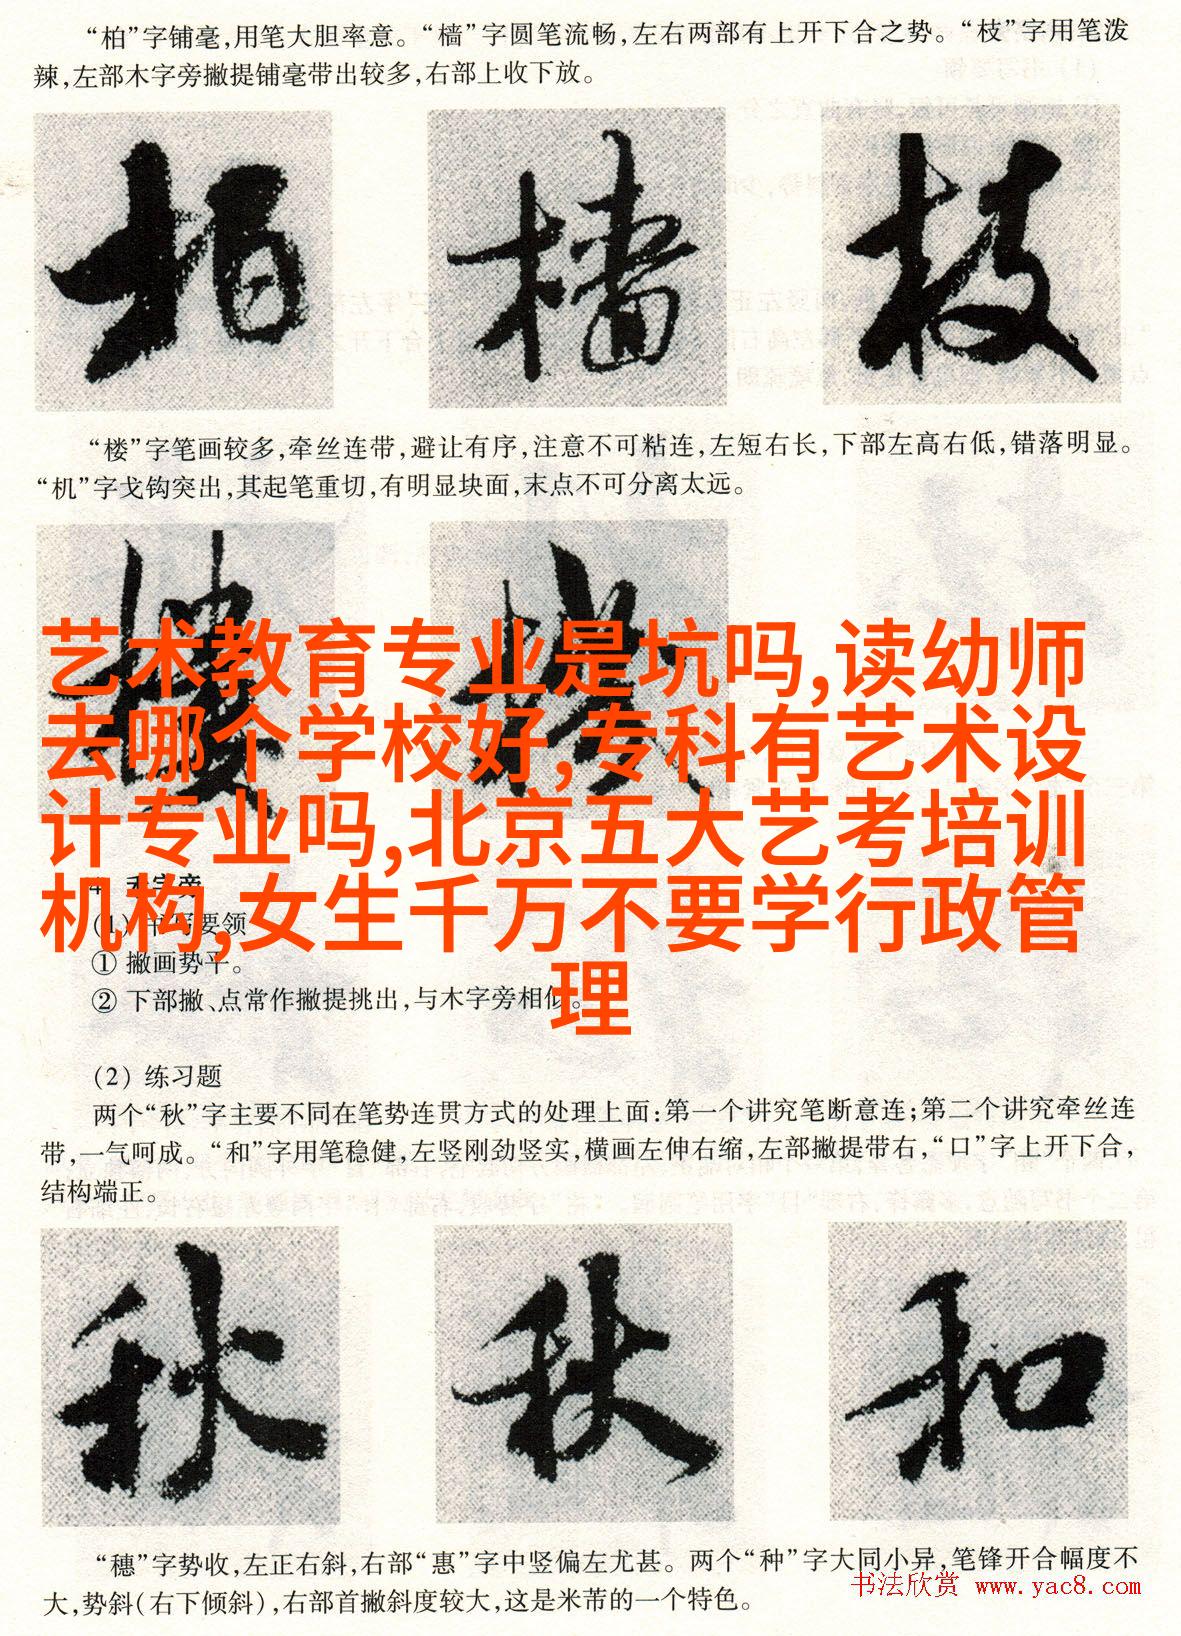 “柏”字铺毫,用笔大胆率意。“樯”字圆笔流畅,左右两部有上开下合之势。“枝”字用笔泼
辣,左部木字旁撇提铺毫带出较多,右部上收下放。
柏 樯 枝
“楼”字笔画较多,牵丝连带,避让有序,注意不可粘连,左短右长,下部左高右低,错落明显。
“机”字戈钩突出,其起笔重切,有明显块面,末点不可分离太远。
艺术教育专业是坑吗,读幼师
去哪个学校好,专科有艺术设
计专业吗,北京五大艺考培训
机构,女生千万不要学行政管
理
4. 禾字旁
(1) 书写要领
① 撇画势平。
② 下部撇、点常作撇提挑出,与木字旁相似。
(2) 练习题
两个“秋”字主要不同在笔势连贯方式的处理上面:第一个讲究笔断意连;第二个讲究牵丝连
带,一气呵成。“和”字用笔稳健,左竖刚劲竖实,横画左伸右缩,左部撇提带右,“口”字上开下合,
结构端正。
秋 秋 和
“穗”字势收,左正右斜,右部“惠”字中竖偏左尤甚。两个“种”字大同小异,笔锋开合幅度不
大,势斜(右下倾斜),右部首撇斜度较大,这是米芾的一个特色。
书法欣赏 www.yac8.com